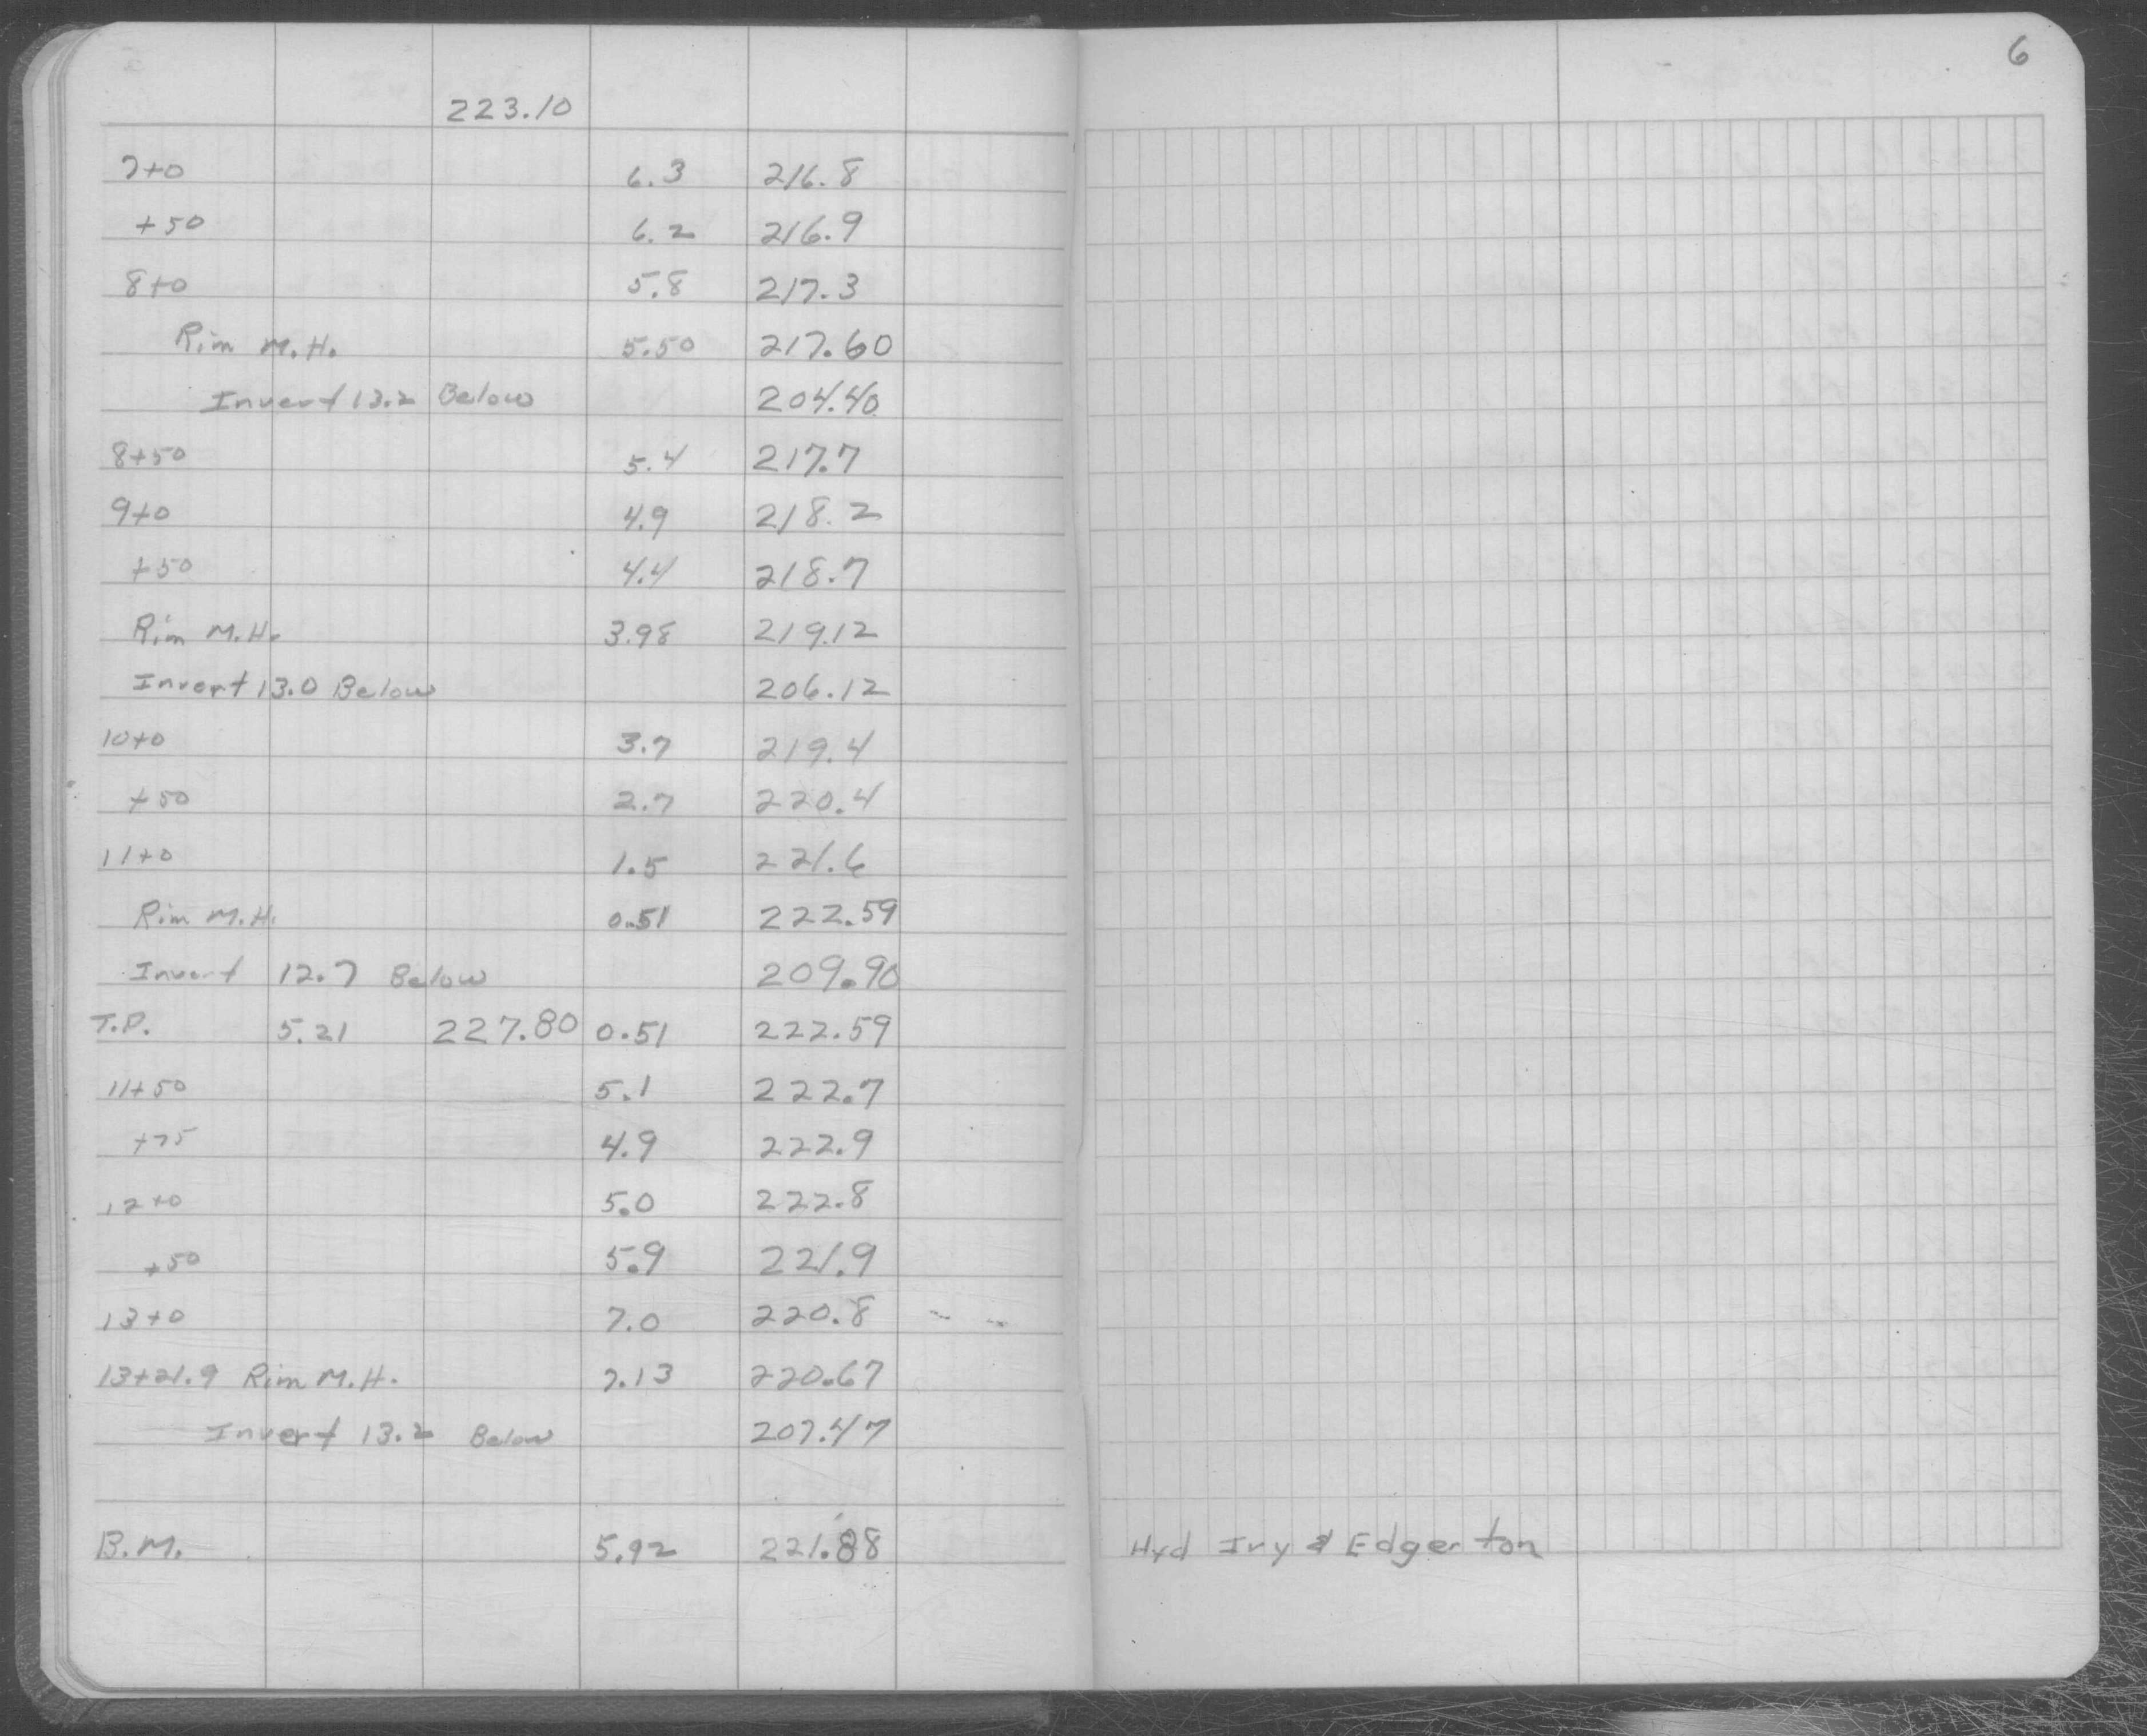 6
223.10
7+0 6.3 216.8
+50 6.2 216.9
8+0 5.8 217.3
Rim M.H. 5.50 217.60
Invert 13.2 Below 204.40
8+50 5.4 217.7
9+0 4.9 218.2
+50 4.4 218.7
Rim M.H. 3.98 219.12
Invert 13.0 Below 206.12
10+0 3.7 219.4
+50 2.7 220.4
11+0 1.5 221.6
Rim M.H. 0.51 222.59
Invert 12.7 Below 209.90
T.P. 5.21 227.80 0.51 222.59
11+50 5.1 222.7
+75 4.9 222.9
12+0 5.0 222.8
+50 5.9 221.9
13+0 7.0 220.8
13+21.9 Rim M.H. 7.13 220.67
Invert 13.2 Below 207.47
B.M. 5.92 221.88 Hyd Ivy & Edgerton